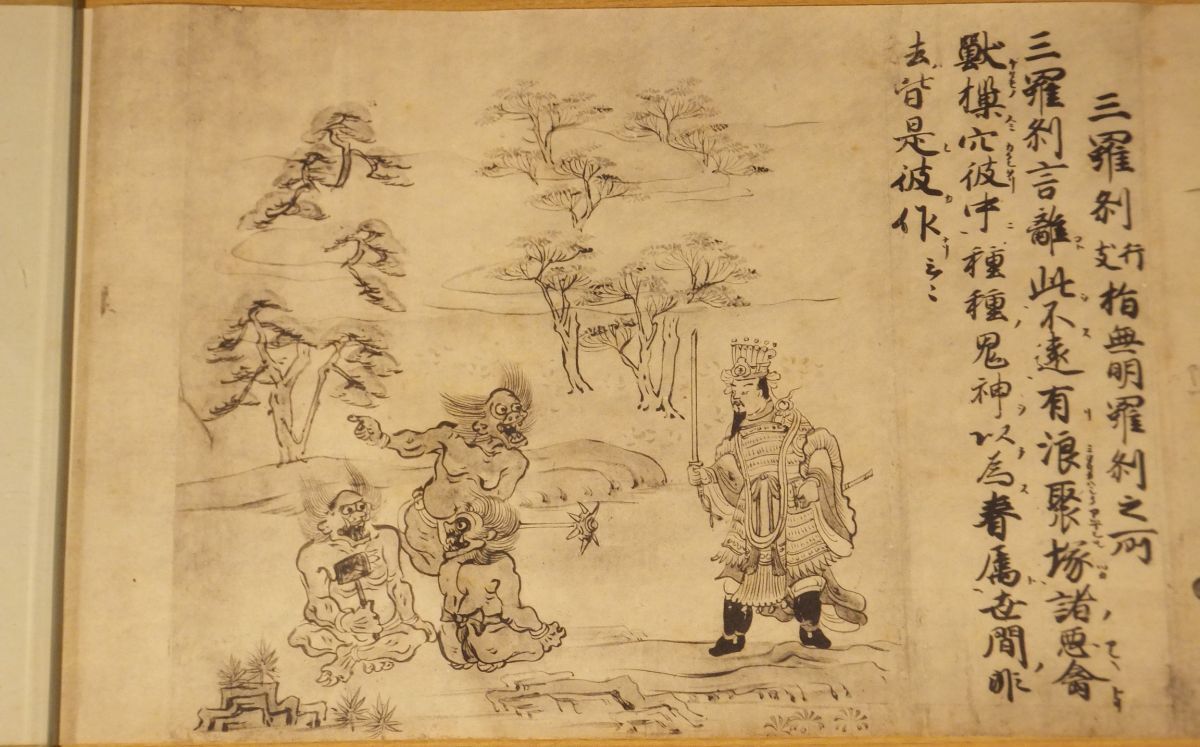 三羅刹行支指無明羅刹之所
三羅刹言離此不遠有浪聚塚諸悪禽
獸樔穴彼中種種鬼神以為眷属世間非
法皆是彼作云々